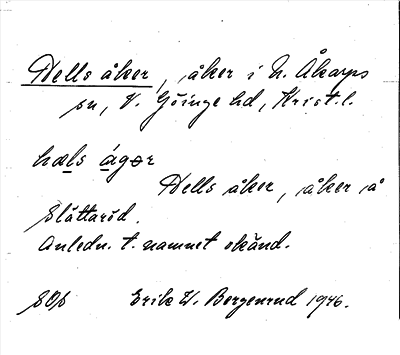 Hells åker, åker i N. Åkarps
sn, V. Göinge hd, Krist. l.
hæls ágər
Hells åker, åker på
Slättaröd.
Anledn. t. namnet okänd.
Erik W. Bergenrud 1946.